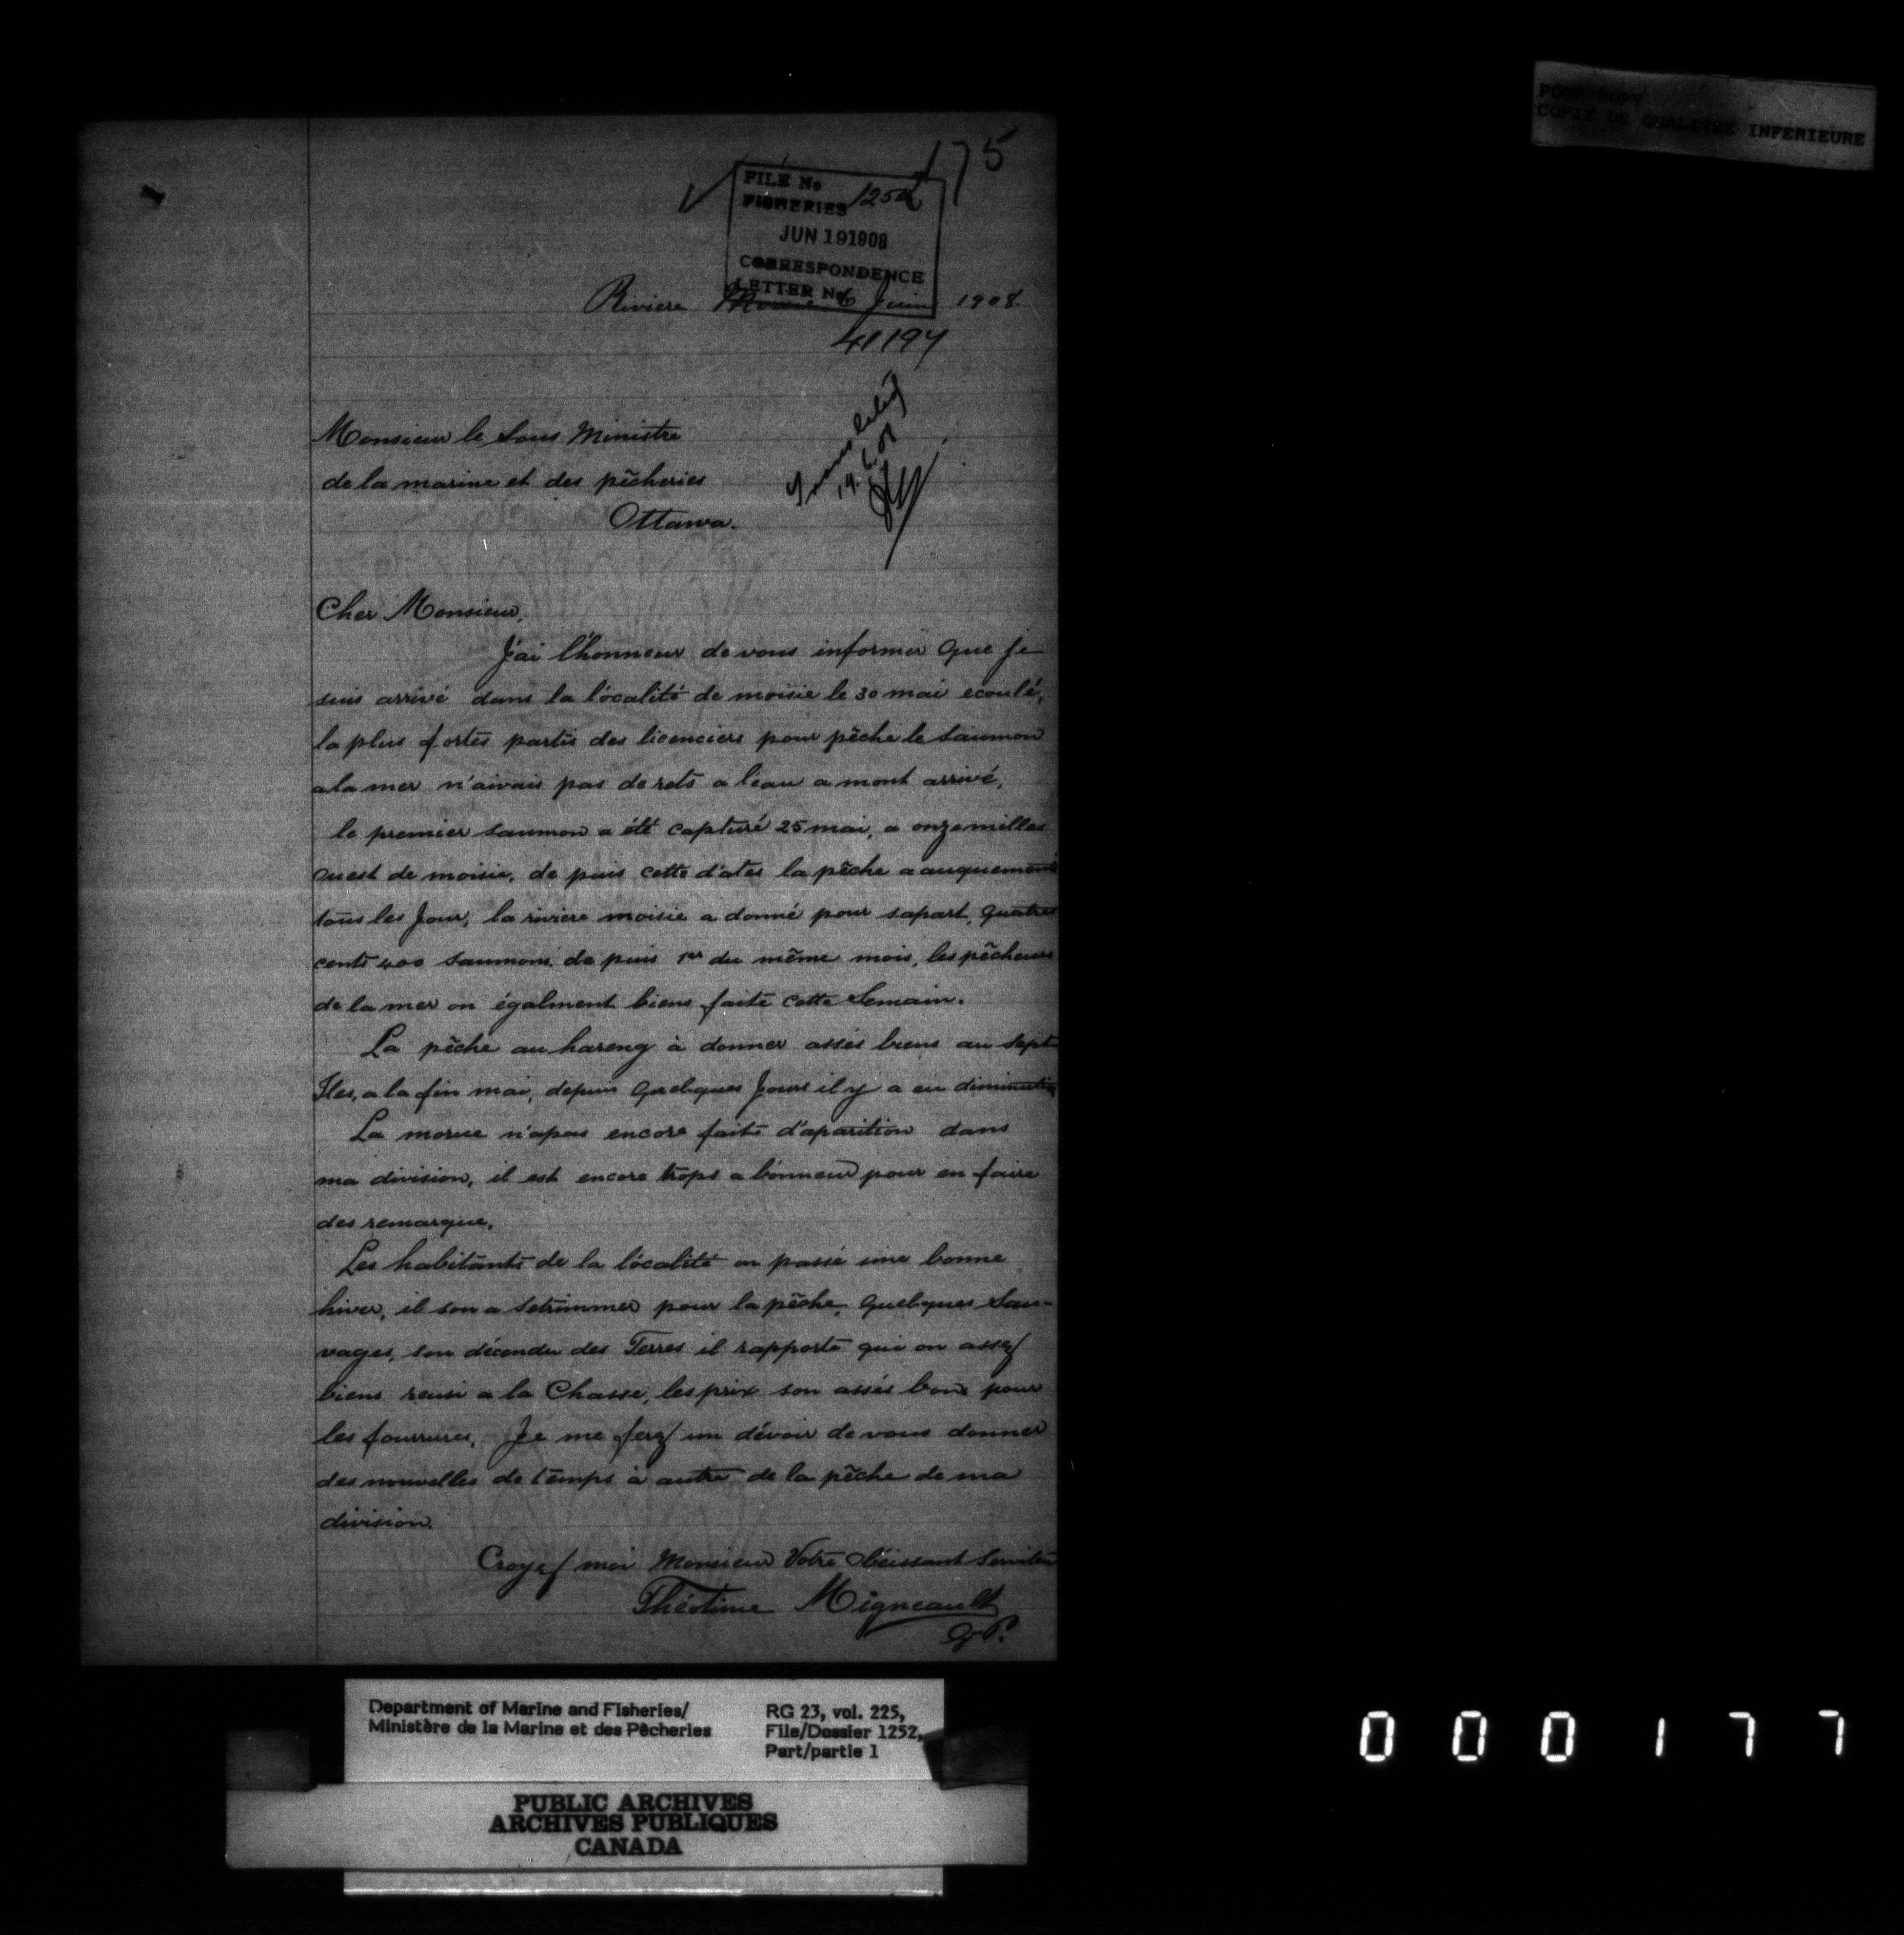 POOR COPY
COPIE DE QUALITEE INFERIEURE
175
FILE No
FISHERIES 1252
JUN 19 1908
CORRESPONDENCE
LETTER No
Riviere Moisie 6 Juin 1908.
41194
Translated
19.6.08
Monsieur le Sous Ministre
de la marine et des pêcheries
Ottawa.
Cher Monsieur,
J'ai l'honneur de vous informer que je
suis arrivé dans la localité de moisie le 30 mai ecoulé,
la plus fortes partis des licenciers pour pêche le saumon
a la mer n'aivais pas de rets a l'eau a mont arrivé,
le premier saumon a été capturé 25 mai, a onze milles
ouest de moisie, de puis cette dates la pêche a auguementé
tous les Jour, la riviere moisie a donné pour sa part, quatres
cents 400 saumons. de puis 1er du même mois, les pêcheurs
de la mer on égalment biens faite cette Semain.
La pêche au hareng à donner assés biens au Sept
Iles, a la fin mai, depuis quelques Jours il y a eu diminution
La morue n'a pas encore faite d'aparition dans
ma division, il est encore trops a bonneur pour en faire
des remarque.
Les habitants de la localité on passé une bonne
hiver, il son a setrimmer pour la pêche, quelques Sau-
vages, son décendu des Terres il rapporte qui on assez
biens reusi a la Chasse, les prix son assés bons pour
les fourrures, Je me ferez un dévoir de vous donner
des nouvelles de temps à autre de la pêche de ma
division.
Croyez moi Monsieur Votre obéissant Serviteur
Théotime Migneault
G.P.
Department of Marine and Fisheries/
Ministère de la Marine et des Pêcheries
RG 23, vol. 225,
File/Dossier 1252,
Part/partie 1
PUBLIC ARCHIVES
ARCHIVES PUBLIQUES
CANADA
000177